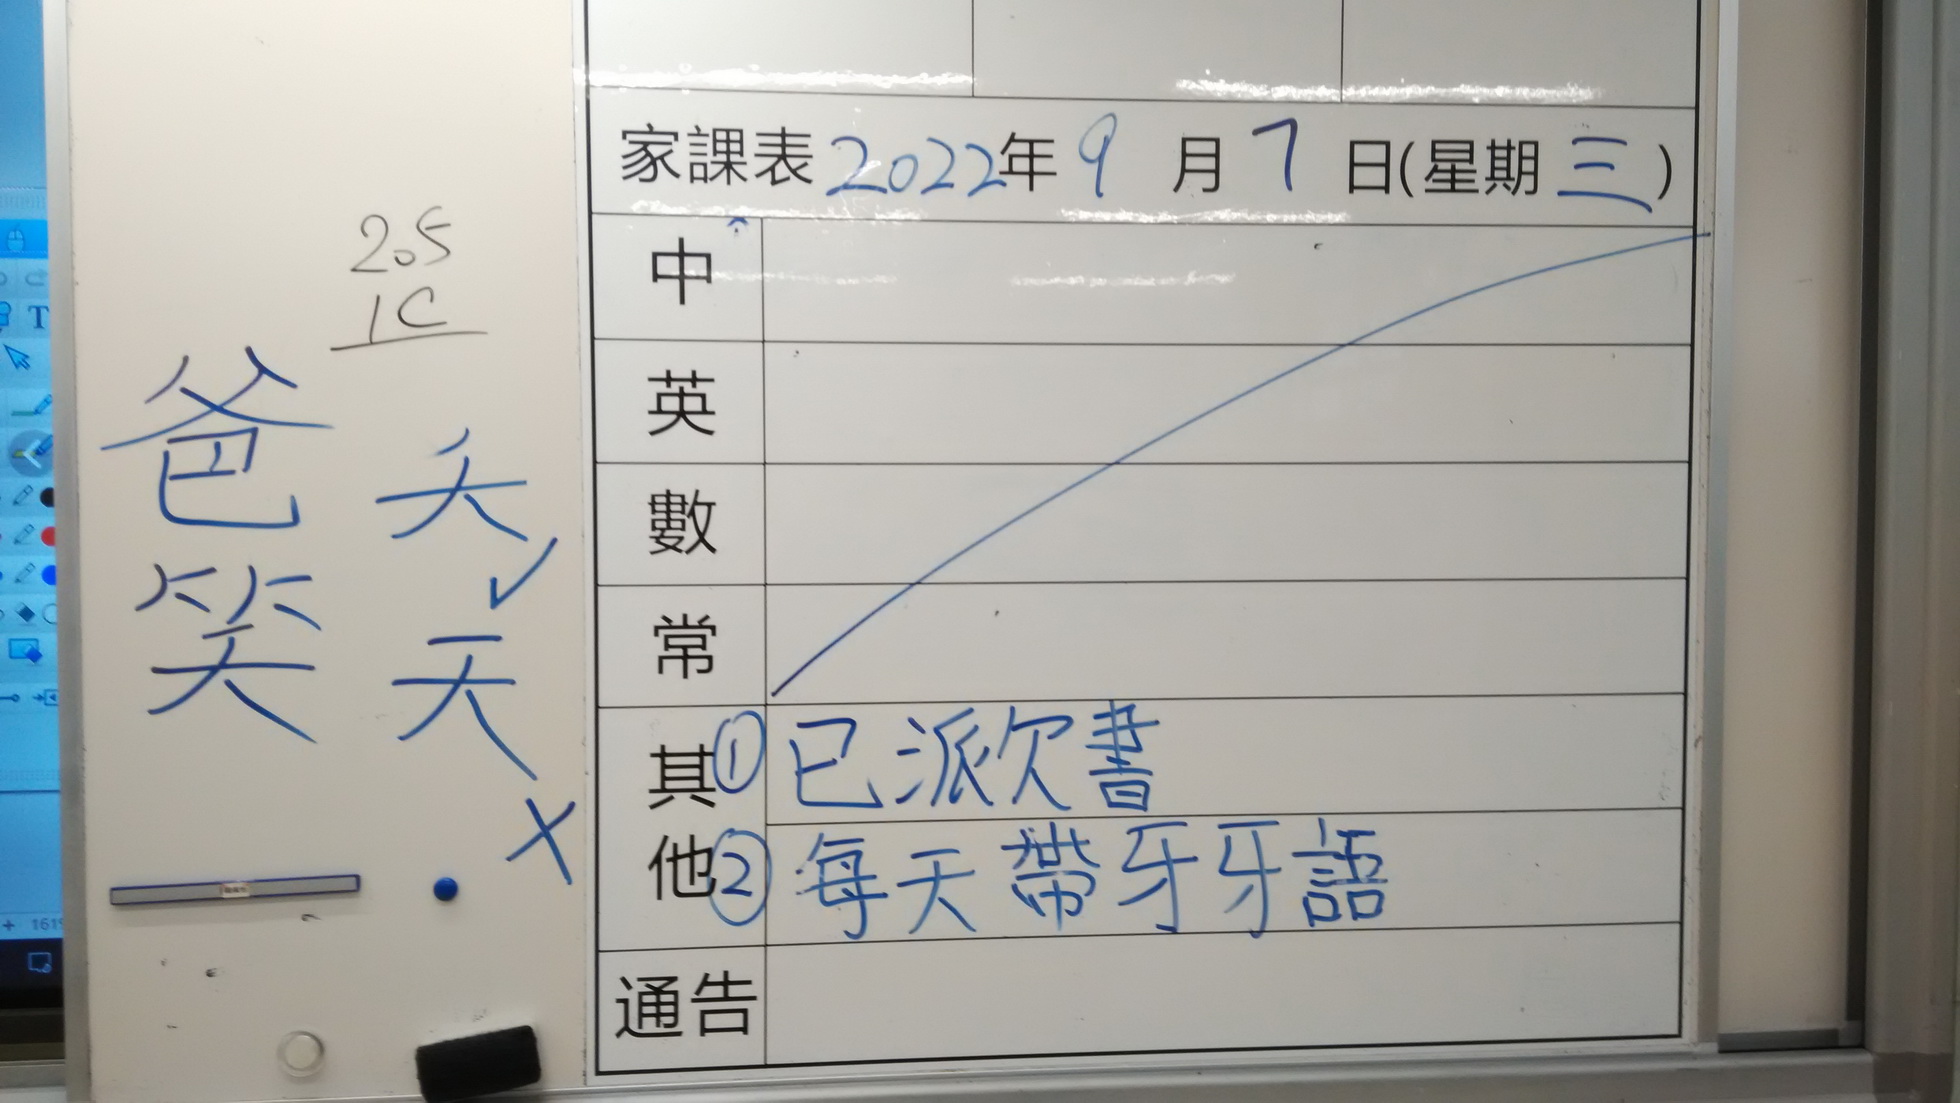 205
1C
爸
笑
夭 ✓
天 ✗
家課表 2022年 9 月 7 日(星期 三)
中
英
數
常
其他
① 已派欠書
② 每天帶牙牙語
通告
T
+ 161